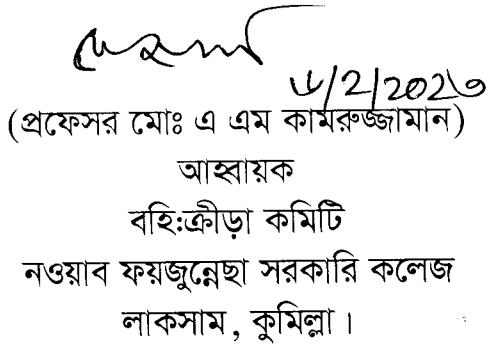 (প্রফেসর মোঃ এ এম কামরুজ্জামান)
আহ্বায়ক
বহি:ক্রীড়া কমিটি
নওয়াব ফয়জুন্নেছা সরকারি কলেজ
লাকসাম, কুমিল্লা।